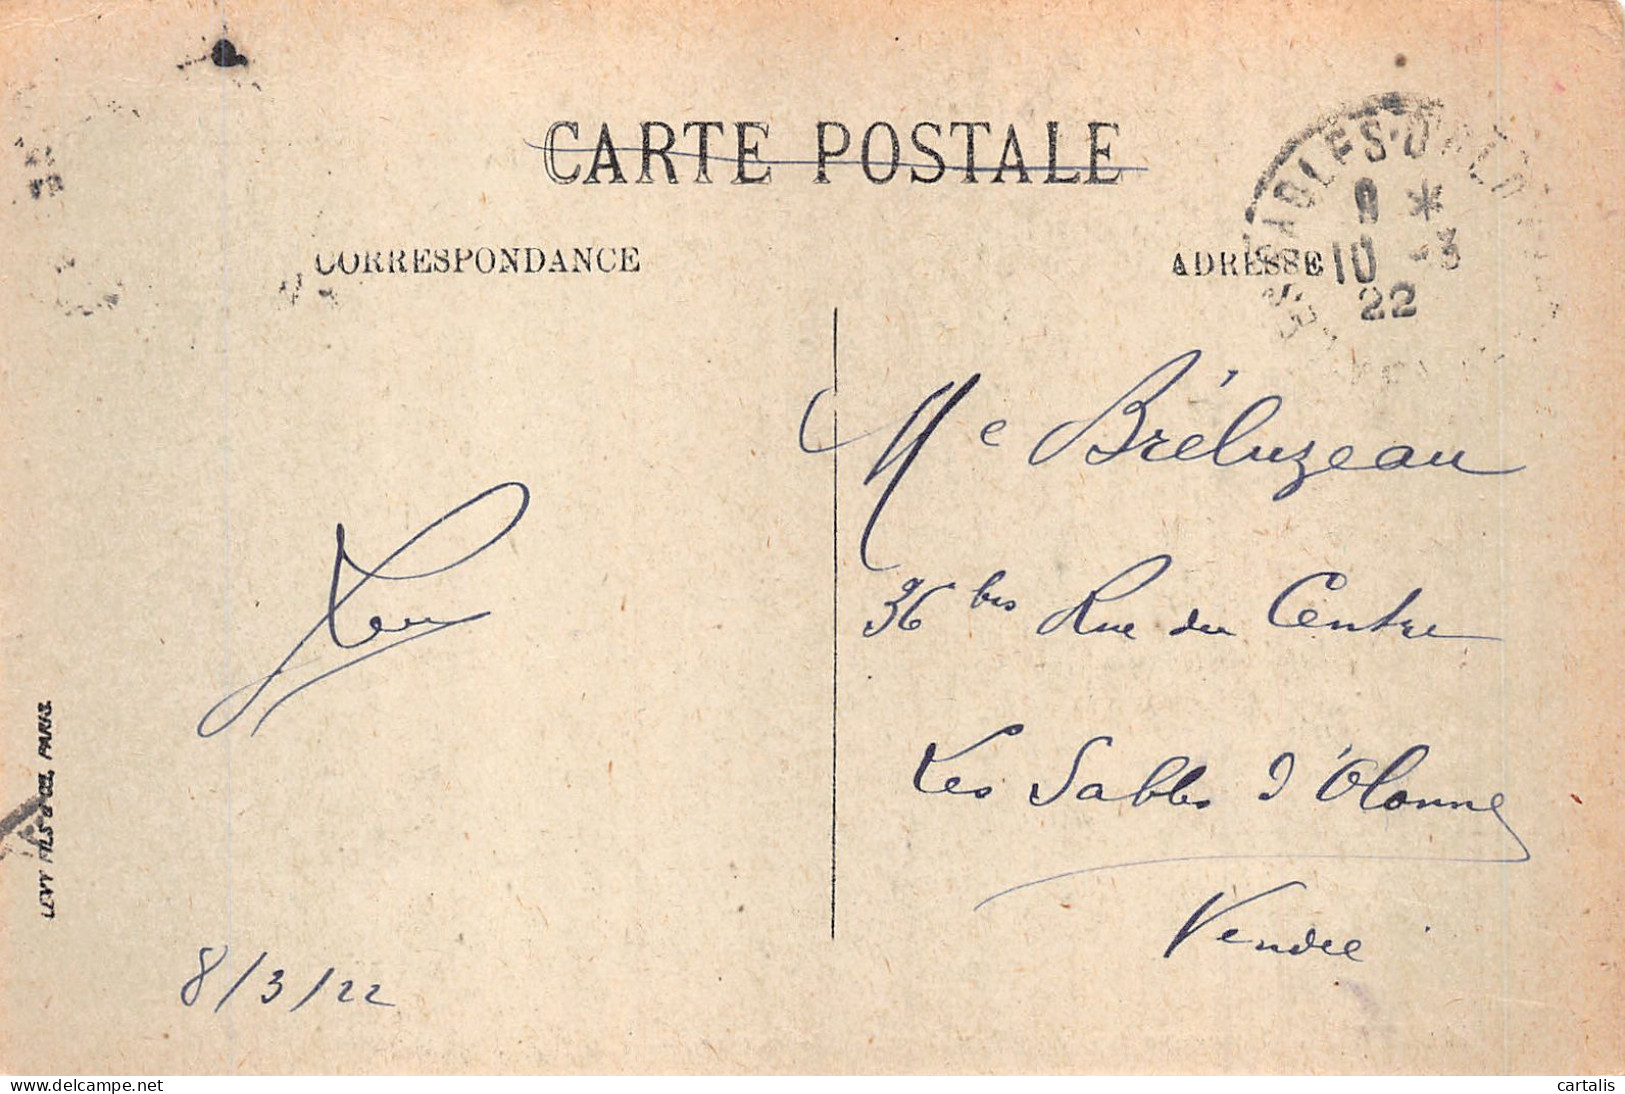 CARTE POSTALE
CORRESPONDANCE
ADRESSE
SABLES-D'OLO
10 -3
22
Me Bréluzeau
36 bis Rue du Centre
Les Sables d'Olonne
Vendée
8/3/22
LEVY FILS & Cie, PARIS.
www.delcampe.net
cartalis